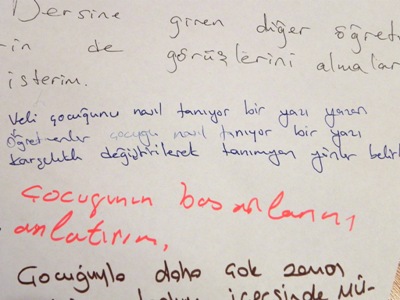 Dersine giren diğer öğretm
rin de görüşlerini almalar
isterim.
Veli çocuğunu nasıl tanıyor bir yazı yazar
Öğretmenler çocuğu nasıl tanıyor bir yazı
Karşılıklı değiştirilerek tanımıyan yönler belirl
Çocuğunun başarılarını,
anlatırım,
Çocuğuyla daha çok zaman
içersinde mü-